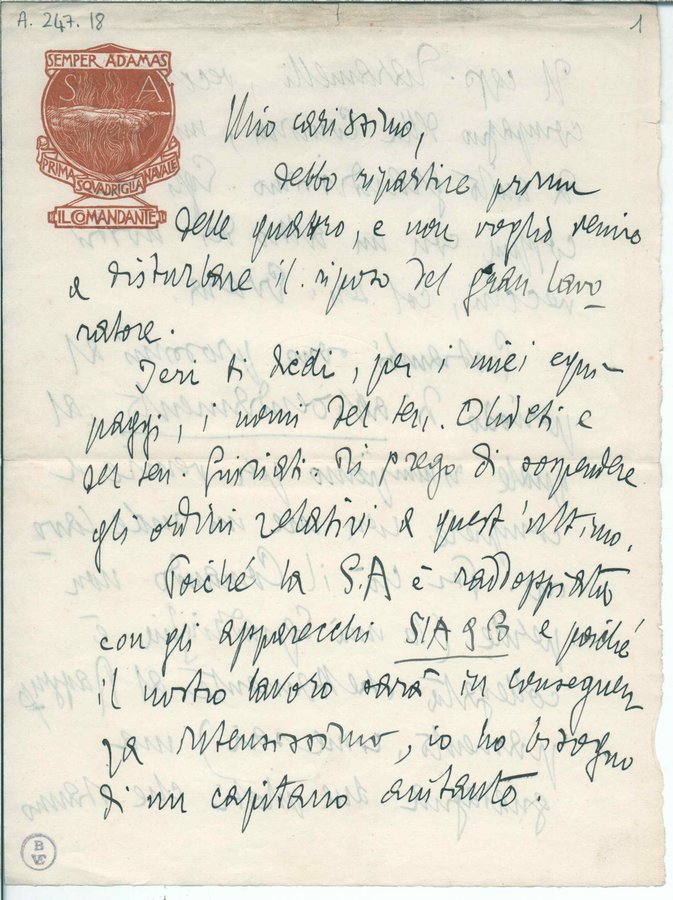 A. 247. 18
1
SEMPER ADAMAS
S A
PRIMA SQUADRIGLIA NAVALE
IL COMANDANTE
Mio carissimo,
debbo ripartire prima
delle quattro, e non voglio venire
a disturbare il riposo del gran lavo-
ratore.
Ieri ti diedi, per i miei equi-
paggi, i nomi del ten. Olivieti e
del ten. Giuriati. Ti prego di sospendere
gli ordini relativi a quest'ultimo.
Poiché la S.A è raddoppiata
con gli apparecchi SIA 9 B e poiché
il nostro lavoro sarà in conseguen
za intensissimo, io ho bisogno
di un capitano aiutante.
B
VE